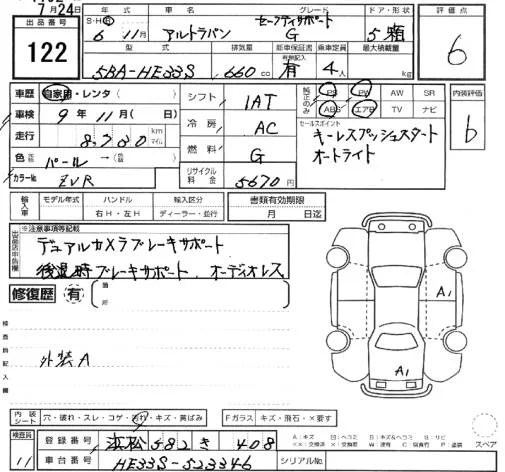 7月24日
出品番号
122
S・H・R 年 車名 グレード ドア・形状
6 11月 アルトラパン セーフティサポート G 5
評価点
6
型式 排気量 新車保証書 乗車定員 最大積載量
有無記入
5BA-HE33S 660cc 有 4人 kg
車歴 自家用・レンタ( )
車検 9年11月( 日)
走行 km マイル
色 元色 パール→(色替 )
カラーNo. ZVR
シフト 1AT
冷房 AC
燃料 G
リサイクル料金 5670円
純正のみ PS PW AW SR
ABS エアB TV ナビ
内装評価
b
セールスポイント
キーレスプッシュスタート
オートライト
輸入車 モデル年式 ハンドル 輸入区分 書類有効期限
右H・左H ディーラー・並行 月 日迄
出品店申告欄
※注意事項等記載
デュアルカメラブレーキサポート
後退時ブレーキサポート、オーディオレス
修復歴 有 箇所
検査員記入欄
外装A
A1
A1
内装シート 穴・破れ・スレ・コゲ・汚れ・キズ・黄ばみ Fガラス キズ・飛石・×要す
検査員 11
登録番号 浜松 582 き 408
車台番号 HE33S-523346 シリアルNo.
スペア